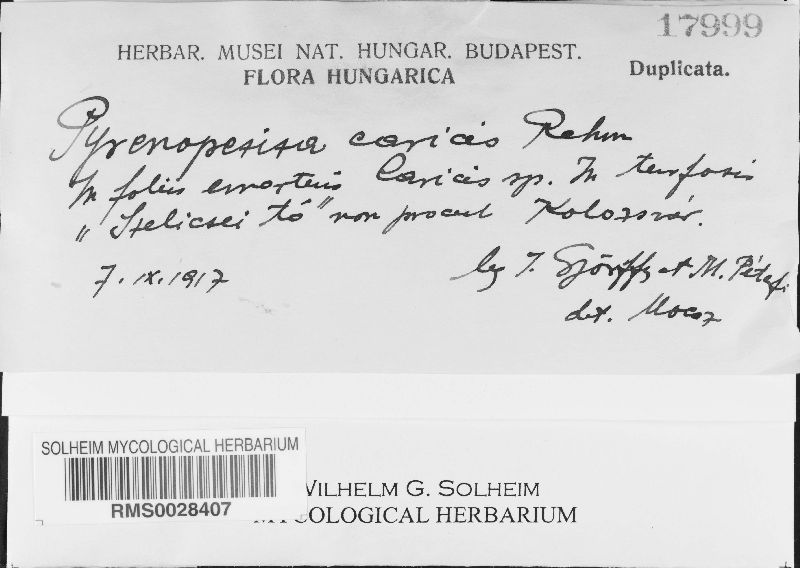 17999
HERBAR. MUSEI NAT. HUNGAR. BUDAPEST.
FLORA HUNGARICA
Duplicata.
Pyrenopeziza caricis Rehm
In foliis emortuis Caricis sp. In turfosis
„Szelicsei tó” non procul Kolozsvár.
7. IX. 1917
leg I. Györffy et M. Péterfi
det. Moesz
SOLHEIM MYCOLOGICAL HERBARIUM
RMS0028407
WILHELM G. SOLHEIM
MYCOLOGICAL HERBARIUM